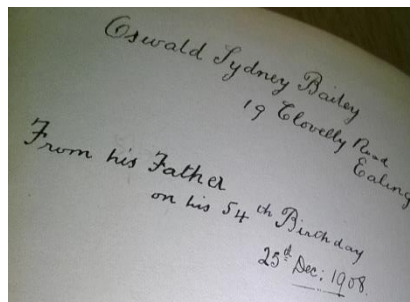 Oswald Sydney Bailey
19 Clovelly Road
Ealing
From his Father
on his 54th Birthday
25th Dec: 1908.